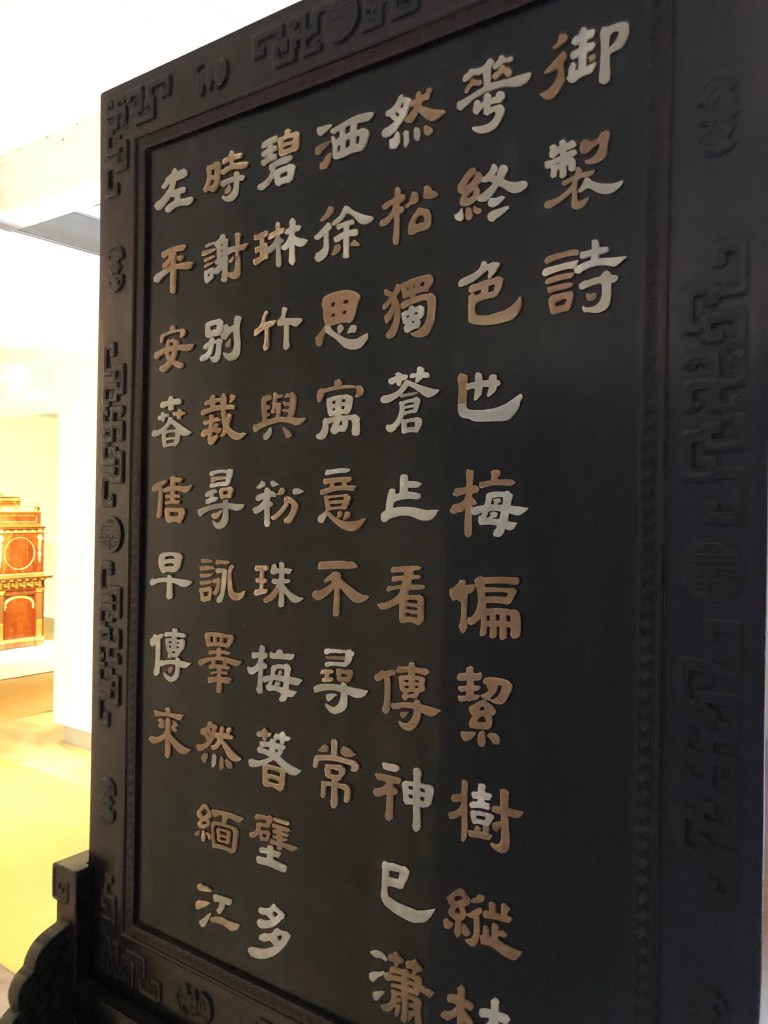 御製詩
華終色也梅偏絜樹縱
然松獨蒼乍看傳神巳瀟
洒徐思寓意不尋常
碧琳竹與粉珠梅著壁多
時謝别裁尋詠睪然緬江
左平安春信早傳來